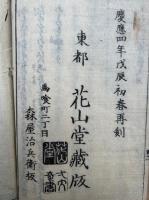 慶應四年戊辰初春再刻
東都 花山堂藏版
馬喰町二丁目
森屋治兵衛板